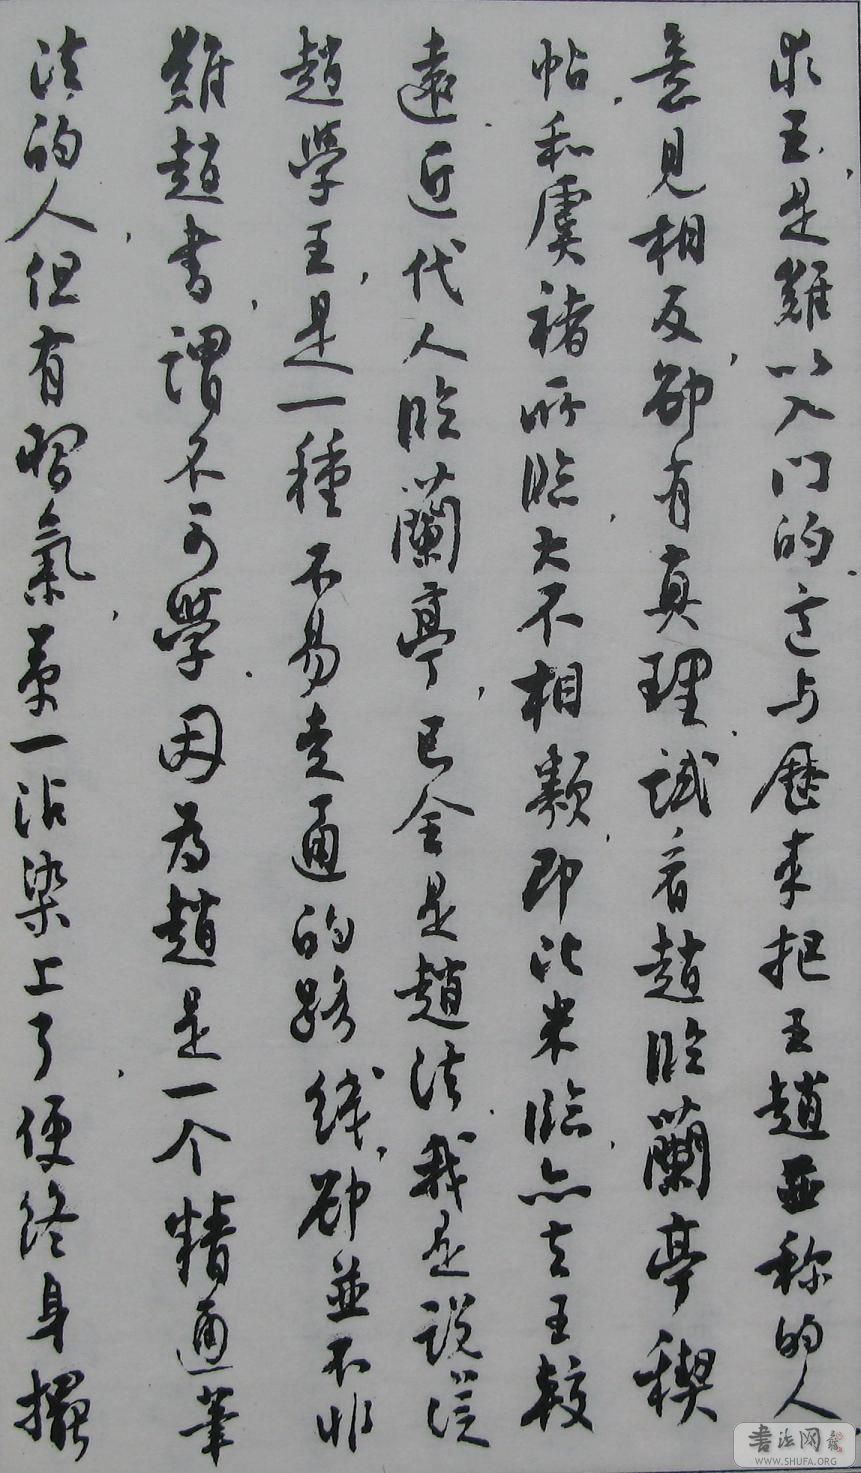 求王，是難以入門的，這与歷来把王趙並称的人
意見相反，卻有真理，試看趙臨蘭亭禊
帖，和虞褚所臨，大不相類，即比米臨，亦去王較
遠，近代人臨蘭亭，已全是趙法，我是説從
趙學王，是一種不易走通的路线，卻並不非
難趙書，謂不可學，因為趙是一个精通筆
法的人，但有習氣，萬一沾染上了，便終身擺
書法网
WWW.SHUFA.ORG